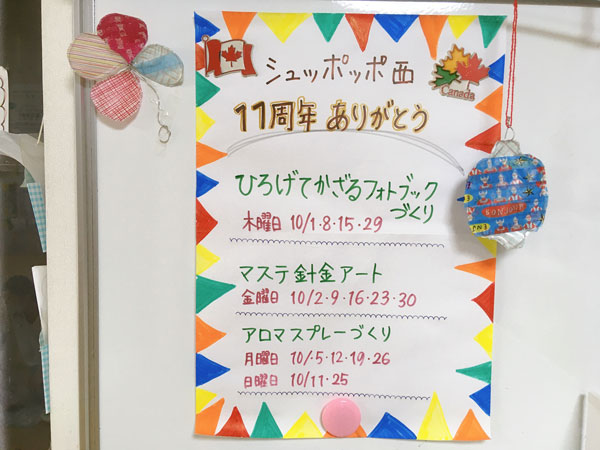 シュッポッポ西
Canada
11周年 ありがとう
ひろげてかざるフォトブック
づくり
木曜日 10/1・8・15・29
マステ針金アート
金曜日 10/2・9・16・23・30
アロマスプレーづくり
月曜日 10/5・12・19・26
日曜日 10/11・25